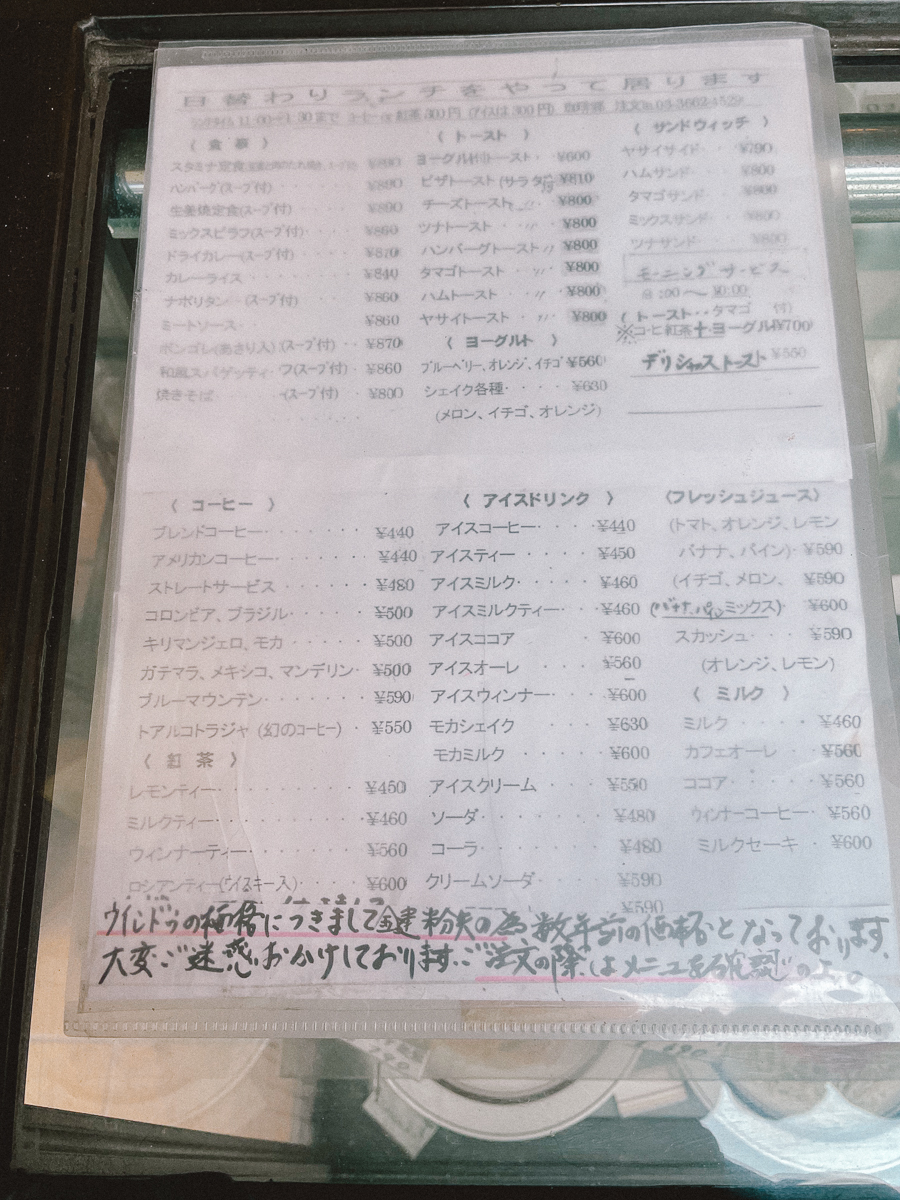 日替わりランチをやって居ります
ランチタイム 11:00〜1:30まで コーヒー or 紅茶 300円 (アイスは 300円) 注文℡ 03-3662-4529
〈 食事 〉
スタミナ定食 ¥890
ハンバーグ(スープ付) ¥890
生姜焼定食(スープ付) ¥890
ミックスピラフ(スープ付) ¥860
ドライカレー(スープ付) ¥870
カレーライス ¥840
ナポリタン (スープ付) ¥860
ミートソース ¥860
ボンゴレ(あさり入)(スープ付) ¥870
和風スパゲッティ (スープ付) ¥860
焼きそば (スープ付) ¥800
〈 トースト 〉
ヨーグルト付トースト ¥600
ピザトースト (サラダ付 ¥810
チーズトースト 〃 ¥800
ツナトースト 〃 ¥800
ハンバーグトースト 〃 ¥800
タマゴトースト 〃 ¥800
ハムトースト 〃 ¥800
ヤサイトースト 〃 ¥800
〈 ヨーグルト 〉
ブルーベリー、オレンジ、イチゴ ¥560
シェイク各種 ¥630
(メロン、イチゴ、オレンジ)
〈 サンドウィッチ 〉
ヤサイサイド ¥790
ハムサンド ¥800
タマゴサンド ¥800
ミックスサンド ¥800
ツナサンド ¥800
モーニングサービス
8:00〜10:00
( トースト・・タマゴ 付)
※コーヒ紅茶+ヨーグルト¥700
デリシャストースト ¥550
〈 コーヒー 〉
ブレンドコーヒー ¥440
アメリカンコーヒー ¥440
ストレートサービス ¥480
コロンビア、ブラジル ¥500
キリマンジェロ、モカ ¥500
ガテマラ、メキシコ、マンデリン ¥500
ブルーマウンテン ¥590
トアルコトラジャ (幻のコーヒー) ¥550
〈 紅茶 〉
レモンティー ¥450
ミルクティー ¥460
ウィンナーティー ¥560
ロシアンティー(ウイスキー入) ¥600
〈 アイスドリンク 〉
アイスコーヒー ¥440
アイスティー ¥450
アイスミルク ¥460
アイスミルクティー ¥460
アイスココア ¥600
アイスオーレ ¥560
アイスウィンナー ¥600
モカシェイク ¥630
モカミルク ¥600
アイスクリーム ¥550
ソーダ ¥480
コーラ ¥480
クリームソーダ ¥590
¥590
〈フレッシュジュース〉
(トマト、オレンジ、レモン
バナナ、パイン) ¥590
(イチゴ、メロン、 ¥590
(バナナ、パインミックス) ¥600
スカッシュ ¥590
(オレンジ、レモン)
〈 ミルク 〉
ミルク ¥460
カフェオーレ ¥560
ココア ¥560
ウィンナーコーヒー ¥560
ミルクセーキ ¥600
ウインドウの価格につきまして鍵紛失の為数年前の価格となっております、
大変ご迷惑おかけしております。ご注文の際はメニューを確認の上。